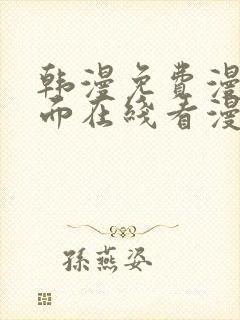 韩漫免费漫
而在线看漫
孫燕姿